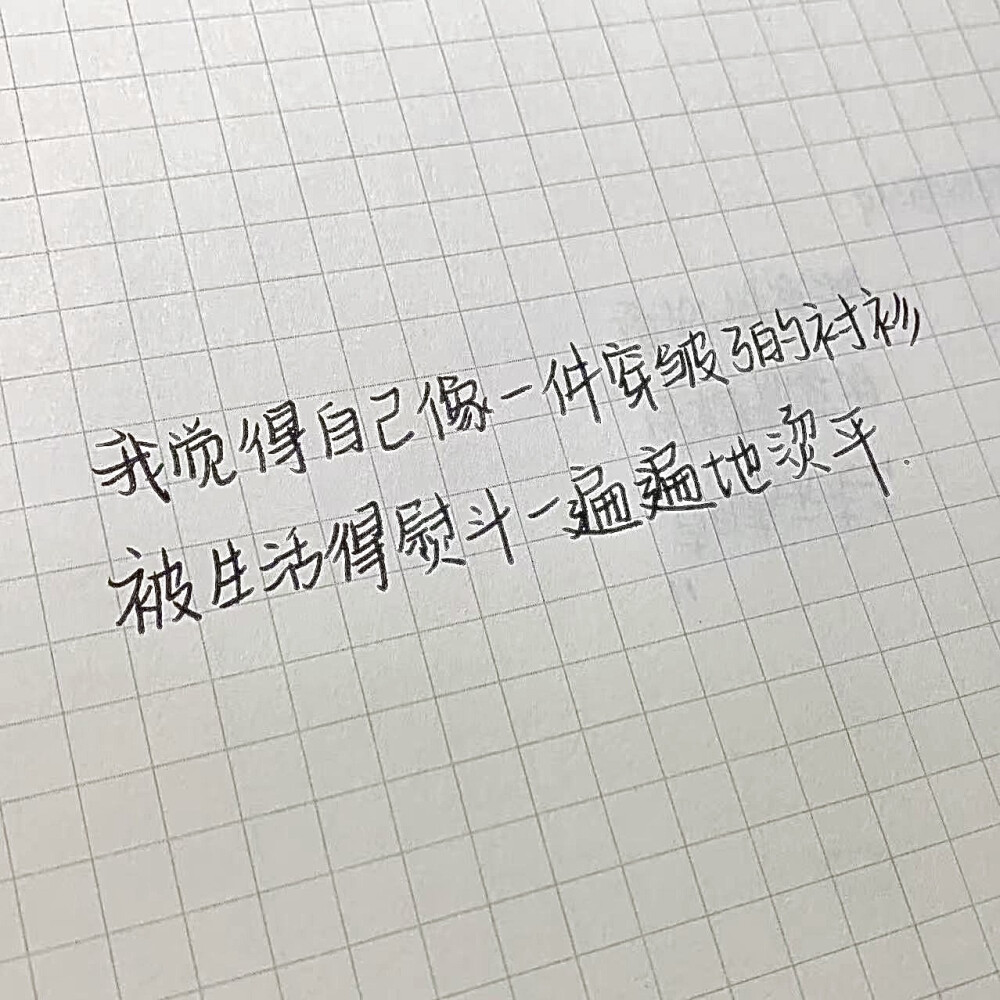 我觉得自己像一件穿皱了的衬衫
被生活得熨斗一遍遍地烫平.